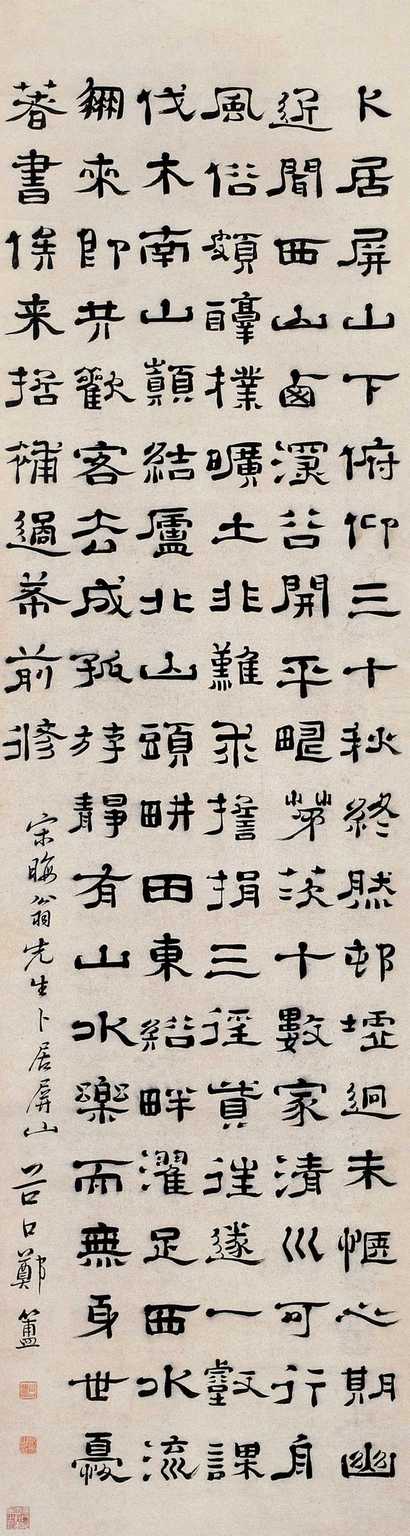 卜居屏山下俯仰三十秋終然邨墟迥未愜心期幽
近聞西山鹵深谷開平疇茅茨十數家清川可行舟
風俗頗醇樸曠土非難求誓捐三徑貲往遂一壑謀
伐木南山巔結廬北山頭畊田東谿畔濯足西水流
來即共歡客去成孤游靜有山水樂而無身世憂
著書俟来哲補過希前修
宋晦翁先生卜居屏山 谷口鄭簠